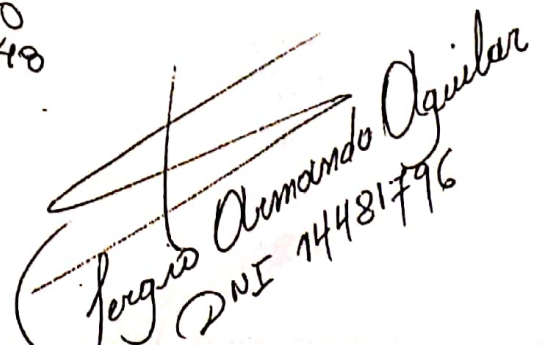 0
48
Sergio Armando Aguilar
DNI 14481796